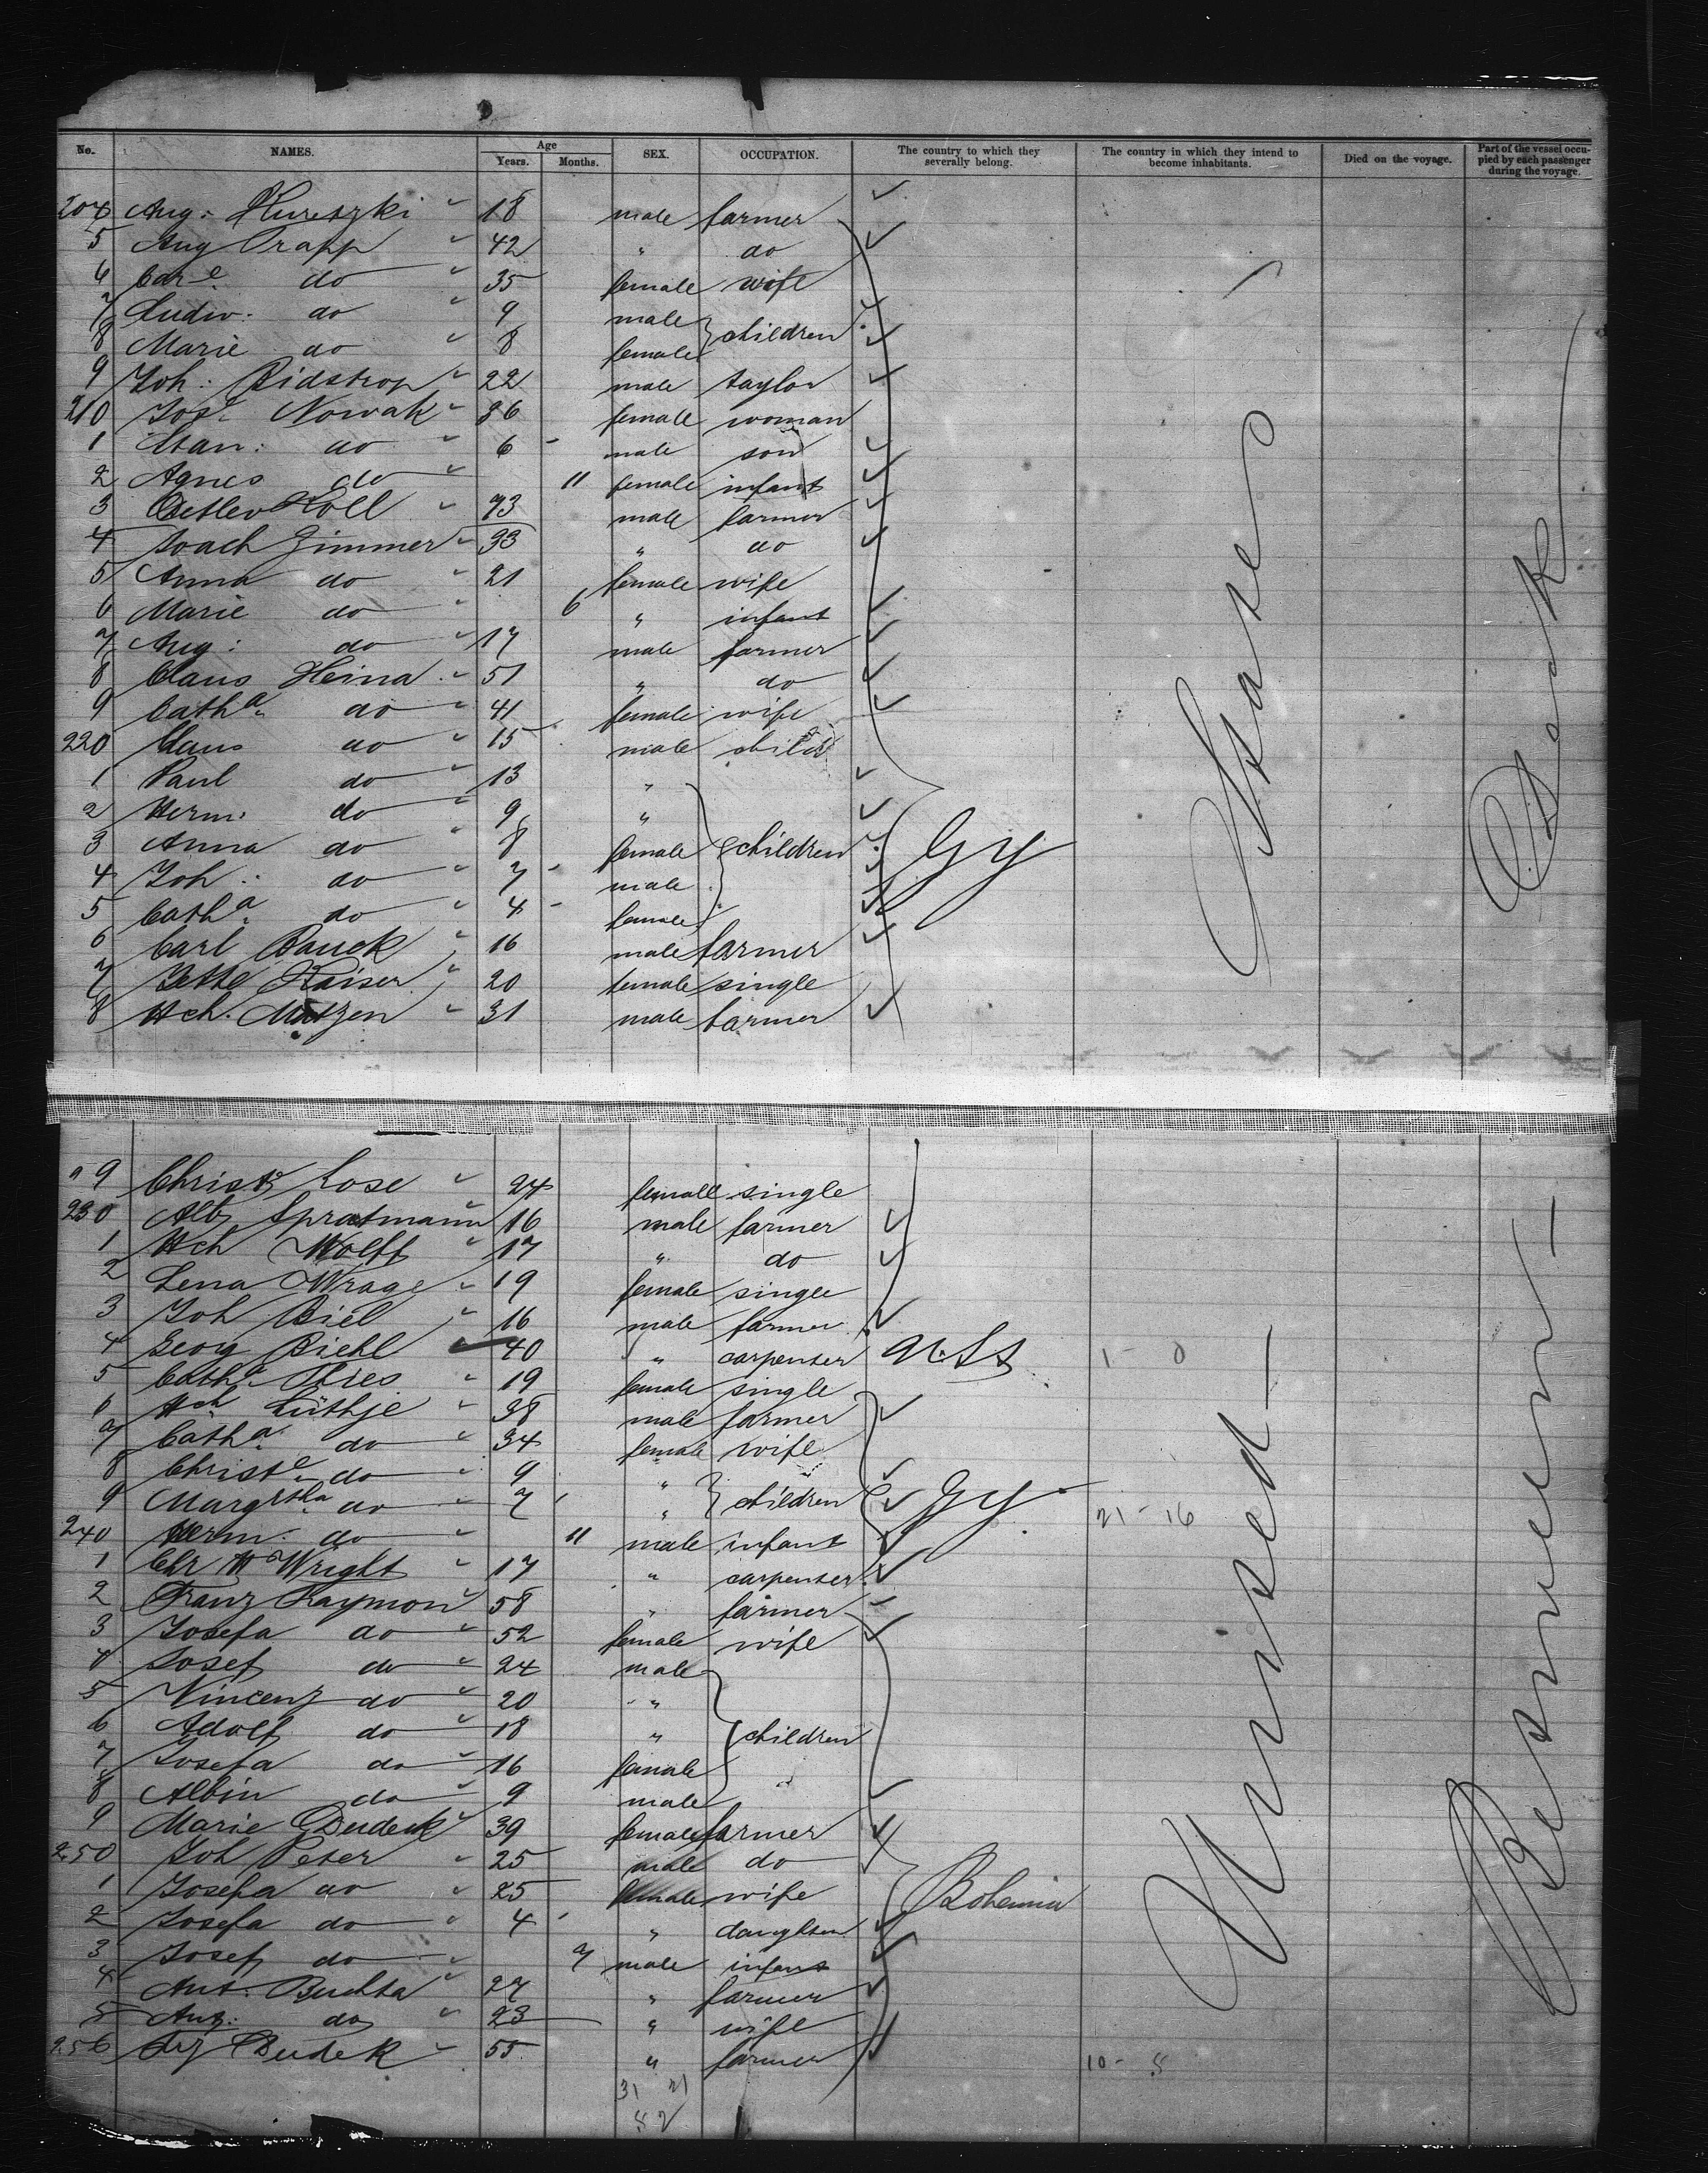 No. NAMES. Age Years. Months. SEX. OCCUPATION. The country to which they severally belong. The country in which they intend to become inhabitants. Died on the voyage. Part of the vessel occupied by each passenger during the voyage.
204 Aug: 18 male farmer
5 Aug Trapp 42 " do
6 Carˡᵉ do 35 female wife
7 Ludw: do 9 male
8 Marie do 8 female } children
9 Joh: Ridstrop 22 male taylor
210 Josᵃ Nowak 36 female woman
1 do 6 male son
2 Agnes do 11 female infant
3 Detlev Holl 73 male farmer
4 Joach Zimmer 33 " do
5 Anna do 21 female wife
6 Marie do 6 " infant
7 Aug: do 17 male farmer
8 Claus Heina 51 " do
9 Cathᵃ do 41 female wife
220 Claus do 15 male child
1 Paul do 13 "
2 Herm: do 9 "
3 Anna do 8 female children Gy
4 Joh: do 7 male
5 Cathᵃ do 4 female
6 Carl Bauck 16 male farmer
7 Jette Kaiser 20 female single
8 Hch. Mutzen 31 male farmer
States
Deck
9 Christᵉ Lose 24 female single
230 Alb Spratmann 16 male farmer
1 Hch Wolff 17 " do
2 Lena Wrage 19 female single
3 Joh Biel 16 male farmer
4 Georg Biehl 40 " carpenter U.St 1 - 0
5 Cathᵃ Thies 19 female single
6 Hch Lüthje 38 male farmer
7 Cathᵃ do 34 female wife
8 Christˡᵉ do 9 "
9 Margrtha do 7 " } children Gy 21 - 16
240 Herm: do 11 male infant
1 Chr Wright 17 " carpenter
2 Franz Raymon 58 " farmer
3 Josefa do 52 female wife
4 Josef do 24 male
5 Vincenz do 20 "
6 Adolf do 18 " children
7 Josefa do 16 female
8 Albin do 9 male
9 Marie Dudek 39 female farmer
250 Joh Peter 25 male do
1 Josefa do 25 female wife Bohemia
2 Josefa do 4 " daughter
3 Josef do 7 male infant
4 Ant. Buchta 27 " farmer
5 Aug: do 23 " wife
256 Dudek 55 " farmer 10 - 5
31 21
52
United
Between